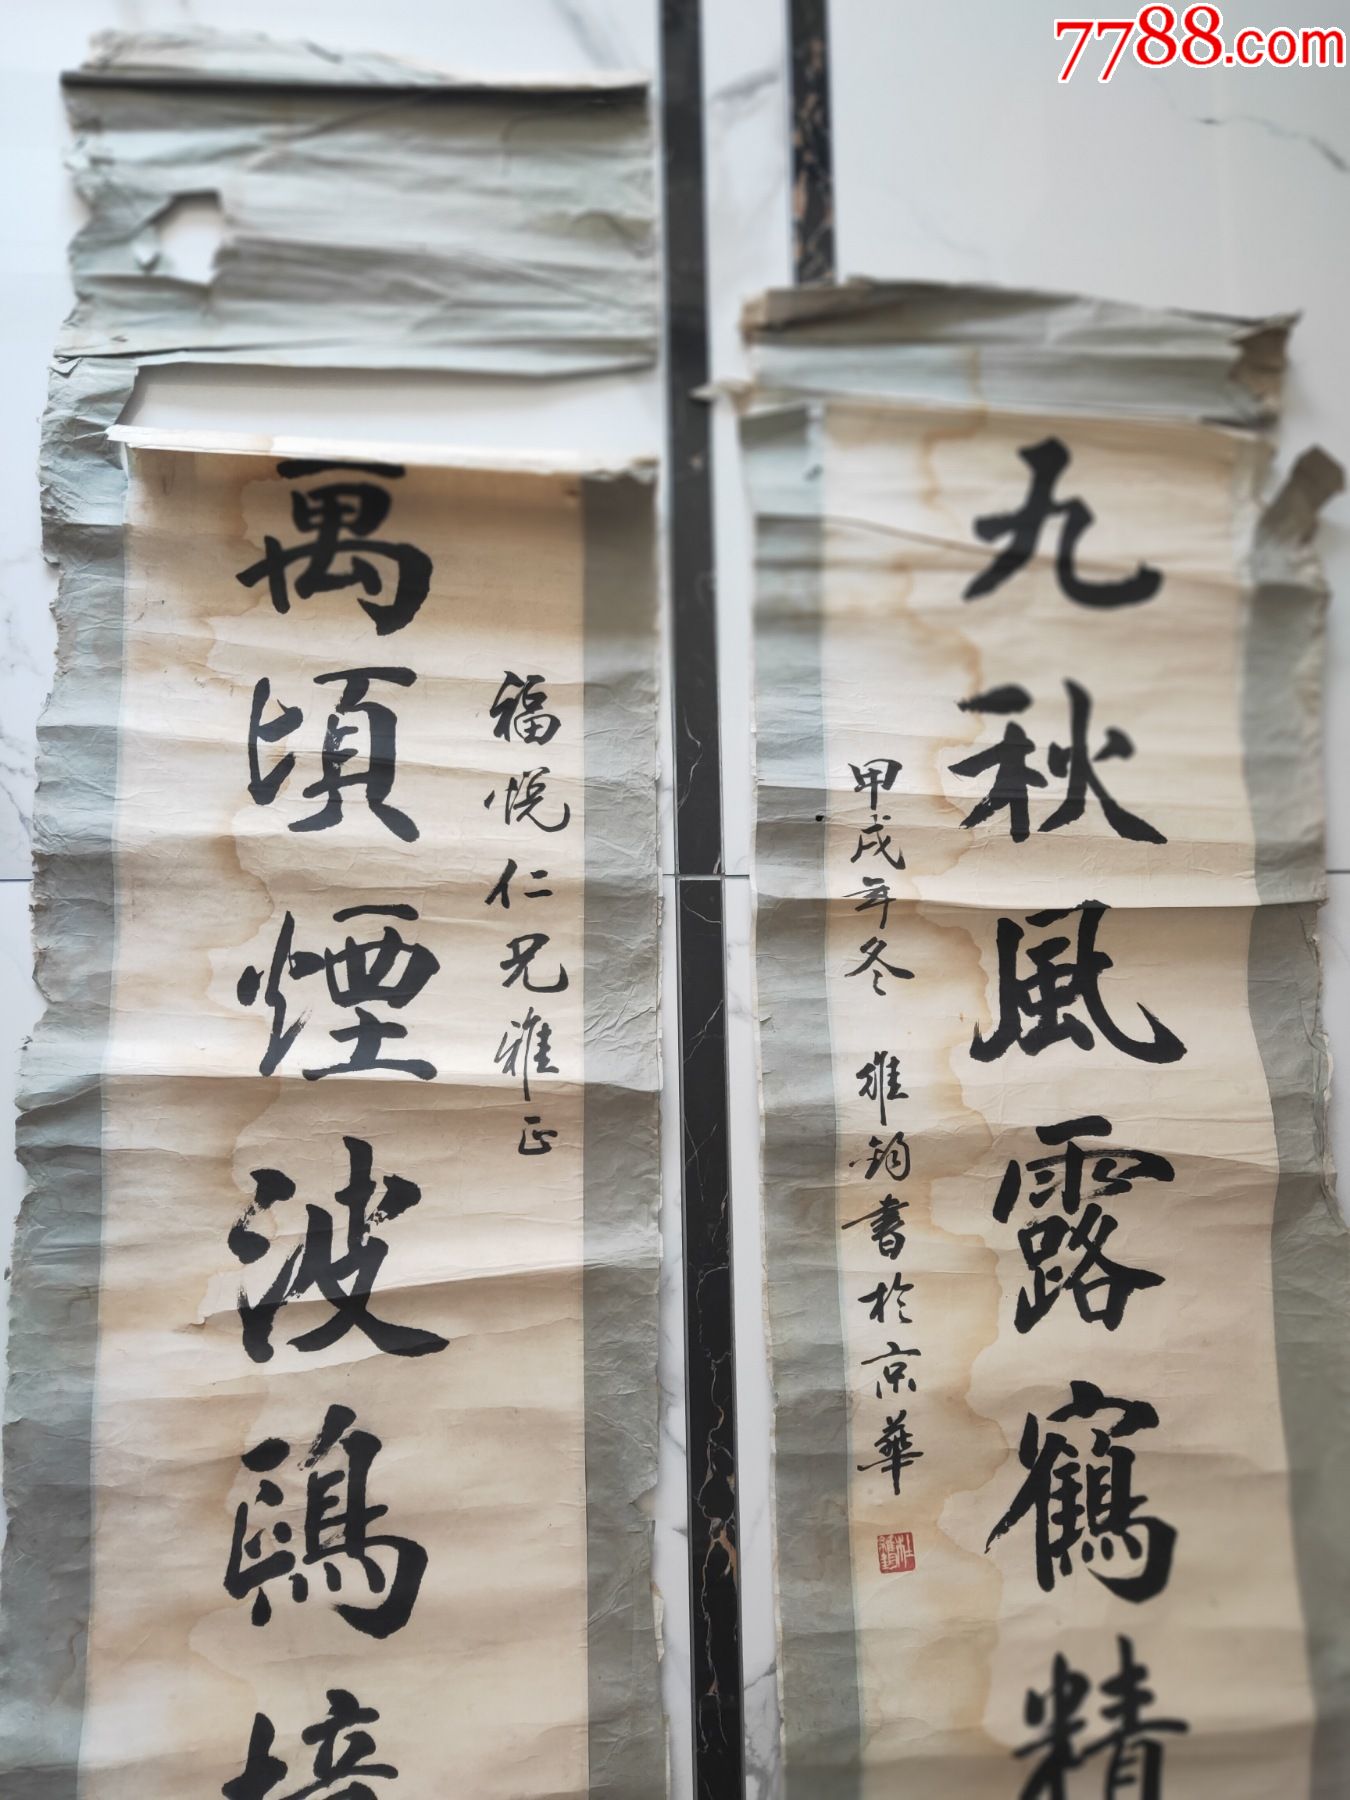 7788.com
九秋風露鶴精
甲戌年冬 雄鈞書於京華
福悅仁兄雅正
萬頃煙波鷗